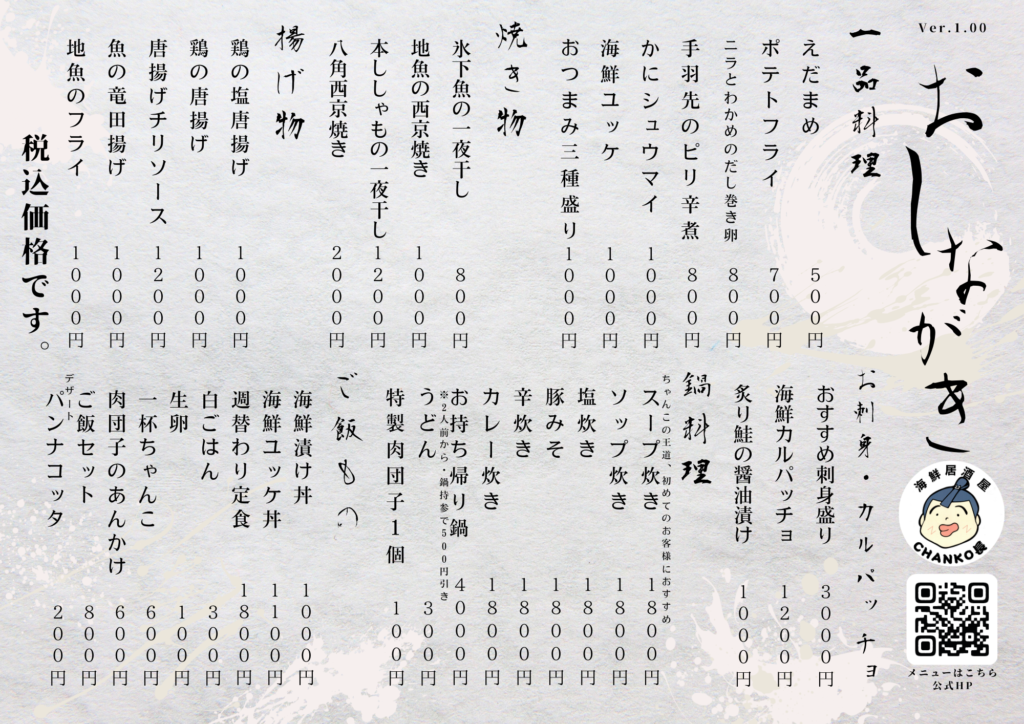 Ver.1.00
おしながき
海鮮居酒屋
CHANKO
メニューはこちら
公式HP
一品料理
えだまめ 500円
ポテトフライ 700円
ニラとわかめのだし巻き卵 800円
手羽先のピリ辛煮 800円
かにシュウマイ 1000円
海鮮ユッケ 1000円
おつまみ三種盛り 1000円
焼き物
氷下魚の一夜干し 800円
地魚の西京焼き 1000円
本ししゃもの一夜干し 1200円
八角西京焼き 2000円
揚げ物
鶏の塩唐揚げ 1000円
鶏の唐揚げ 1000円
唐揚げチリソース 1200円
魚の竜田揚げ 1000円
地魚のフライ 1000円
税込価格です。
お刺身・カルパッチョ
おすすめ刺身盛り 3000円
海鮮カルパッチョ 1200円
炙り鮭の醤油漬け 1000円
鍋料理
ちゃんこの王道、初めてのお客様におすすめ
スープ炊き 1800円
ソップ炊き 1800円
塩炊き 1800円
豚みそ 1800円
辛炊き 1800円
カレー炊き 1800円
お持ち帰り鍋 4000円
※2人前から・鍋持参で500円引き
うどん 300円
特製肉団子1個 100円
ご飯もの
海鮮漬け丼 1000円
海鮮ユッケ丼 1100円
週替わり定食 1800円
白ごはん 300円
生卵 100円
一杯ちゃんこ 600円
肉団子のあんかけ 600円
ご飯セット 800円
デザート
パンナコッタ 200円